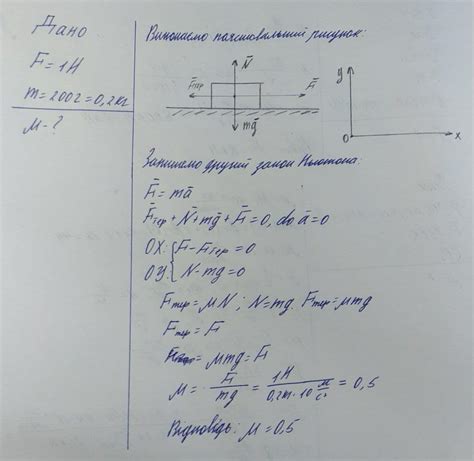 Дано
F = 1H
m = 200г = 0,2кг
M - ?
Виконаємо пояснювальний рисунок:
N̄
F̄тер
F̄
mḡ
y
0
x
Запишемо другий закон Ньютона:
F̄ = mā
F̄тер + N̄ + mḡ + F̄ = 0, do ā = 0
OX: { F - Fтер = 0
OY: { N - mg = 0
Fтер = μN ; N = mg. Fтер = μmg
Fтер = F
Fтер = μmg = F
M = F/mg = 1H/0,2кг·10 м/с² = 0,5
Відповідь: M = 0,5